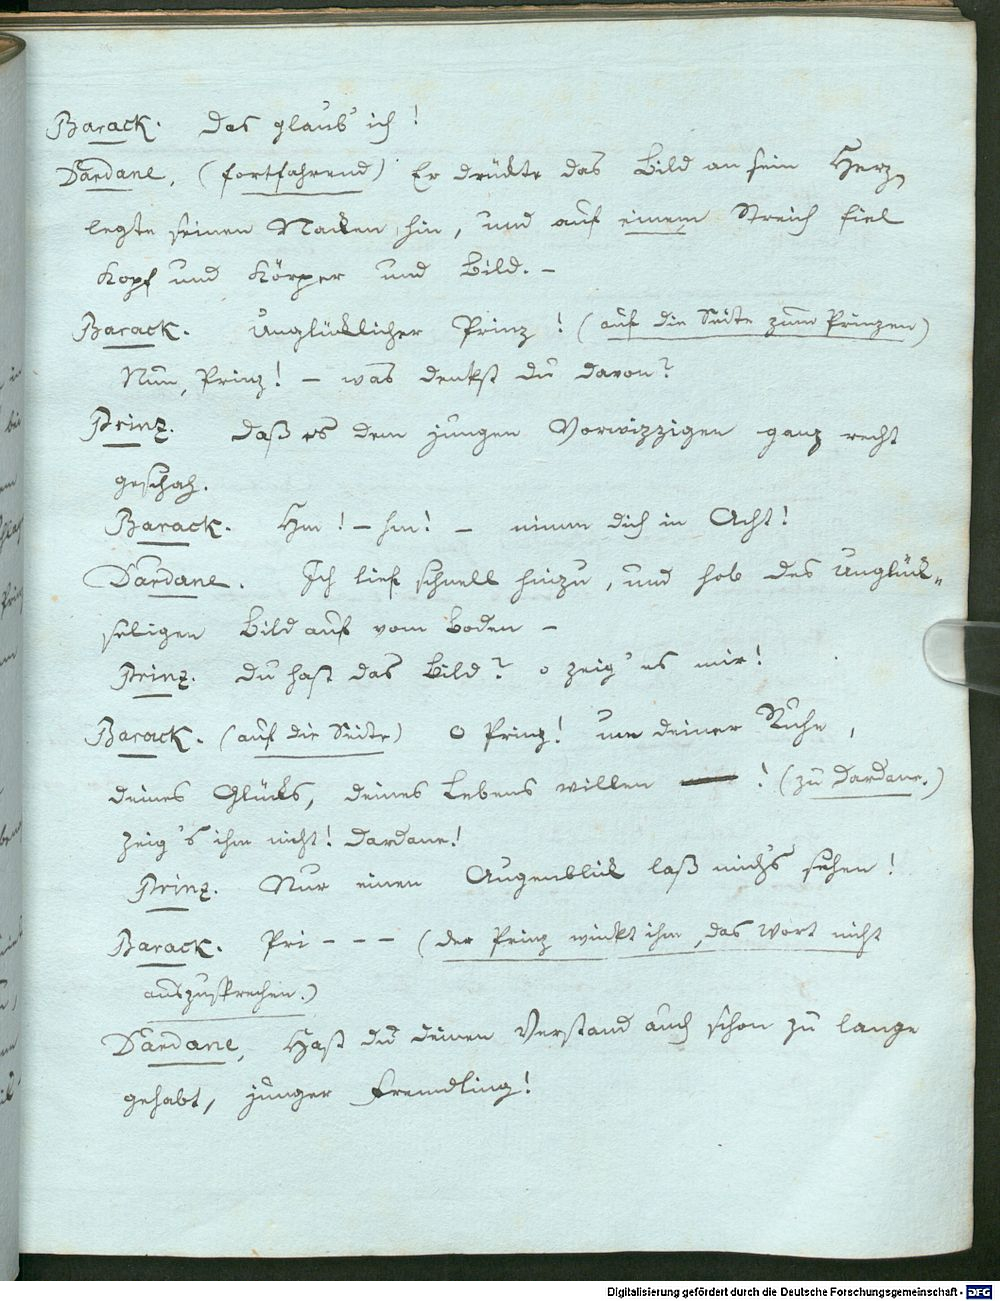 Barack. Das glaub' ich!
Dardane, (fortfahrend) Er drükte das Bild an sein Herz,
legte seinen Nacken hin, und auf einem Streich fiel
Kopf und Körper und Bild. –
Barack. Unglücklicher Prinz! (auf die Seite zum Prinzen)
Nun, Prinz! – was denkst du davon?
Prinz. Daß es dem jungen Vorwizzigen ganz recht
geschah.
Barack. Hm! – hm! – nimm dich in Acht!
Dardane. Ich lief schnell hinzu, und hob das Unglük„
seligen Bild auf vom Boden –
Prinz. Du hast das Bild? o zeig' es mir!
Barack. (auf die Seite) O Prinz! um deiner Ruhe,
deines Glüks, deines Lebens willen ! (zu Dardane.)
zeig's ihm nicht! Dardane!
Prinz. Nur einen Augenblik laß mich's sehen!
Barack. Pri - - - (der Prinz winkt ihm, das Wort nicht
auszusprechen.)
Dardane, Hast du deinen Verstand auch schon zu lange
gehabt, junger Fremdling!
Digitalisierung gefördert durch die Deutsche Forschungsgemeinschaft - DFG